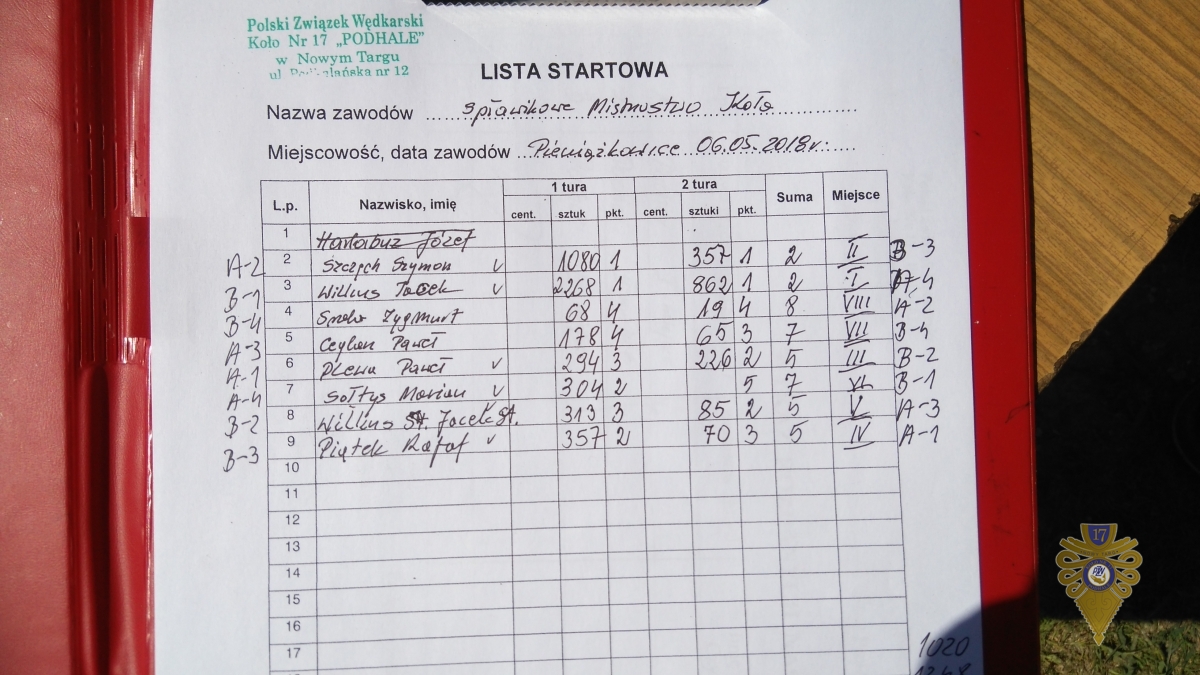 Polski Związek Wędkarski
Koło Nr 17 „PODHALE”
w Nowym Targu
ul. Podhalańska nr 12
LISTA STARTOWA
Nazwa zawodów Spławikowe Mistrzostwo Koła
Miejscowość, data zawodów Pieniążkowice 06.05.2018r.
L.p. Nazwisko, imię 1 tura 2 tura Suma Miejsce
cent. sztuk pkt. cent. sztuki pkt.
1 Harbabuz Józef
A-2 2 Szczęch Szymon v 1080 1 357 1 2 II B-3
B-1 3 Willus Jacek v 2268 1 862 1 2 I A-4
B-4 4 Zygmunt 68 4 19 4 8 VIII A-2
A-3 5 Paweł 178 4 65 3 7 VII B-4
A-1 6 Plewa Paweł v 294 3 226 2 5 III B-2
A-4 7 Sołtys Marian v 304 2 5 7 VI B-1
B-2 8 Willus St. Jacek St. 313 3 85 2 5 V A-3
B-3 9 Piątek Rafał v 357 2 70 3 5 IV A-1
10
11
12
13
14
15
16
17
1020
17
PZW